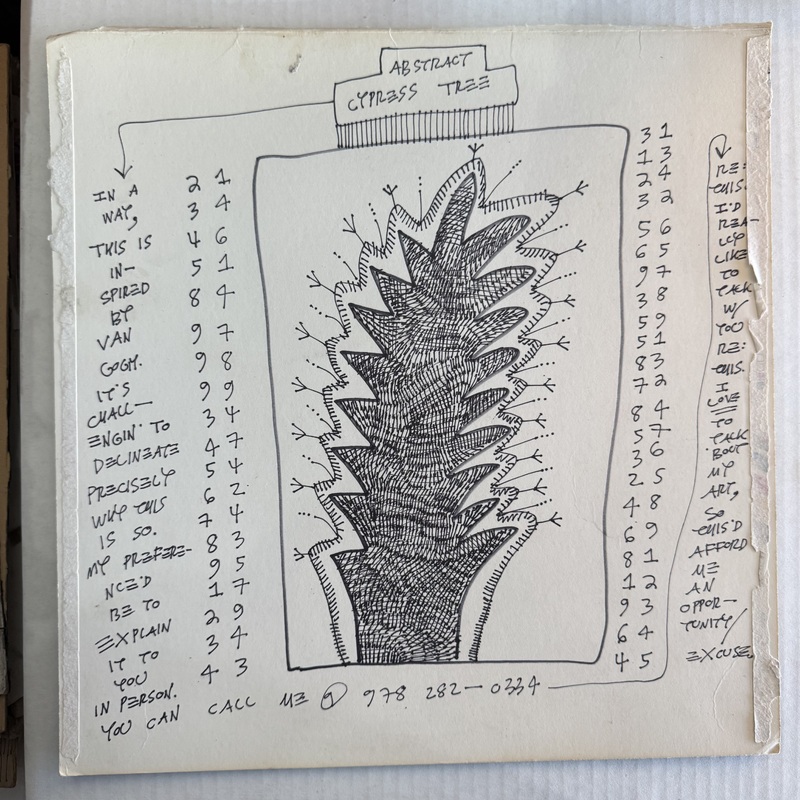 ABSTRACT
CYPRESS TREE
IN A
WAY,
THIS IS
IN-
SPIRED
BY
VAN
GOGH.
IT'S
CHALL-
ENGIN' TO
DELINEATE
PRECISELY
WHY THIS
IS SO.
MY PREFERE-
NCE'D
BE TO
EXPLAIN
IT TO
YOU
IN PERSON.
YOU CAN CALL ME @ 978 282-0334
2 1
3 4
4 6
5 1
8 4
9 7
9 8
9 9
3 4
4 7
5 4
6 2
7 4
8 3
9 5
1 7
2 9
3 4
4 3
3 1
1 3
2 4
3 2
5 6
6 5
9 7
3 8
5 9
5 1
8 3
7 2
8 4
5 7
3 6
2 5
4 8
6 9
8 1
1 2
9 3
6 4
4 5
RE:
THIS.
I'D
REA-
LLY
LIKE
TO
TALK
W/
YOU
RE:
THIS.
I
LOVE
TO
TALK
'BOUT
MY
ART,
SO
THIS'D
AFFORD
ME
AN
OPPOR-
TUNITY/
EXCUSE.